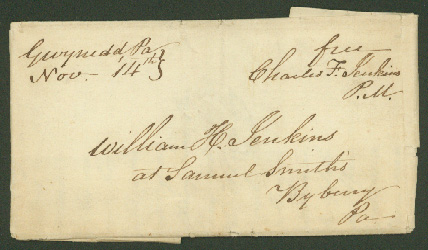 Gwynedd, Pa
Nov - 14th }
free
Charles F. Jenkins
P.M.
William H. Jenkins
at Samuel Smith's
Byberry
Pa